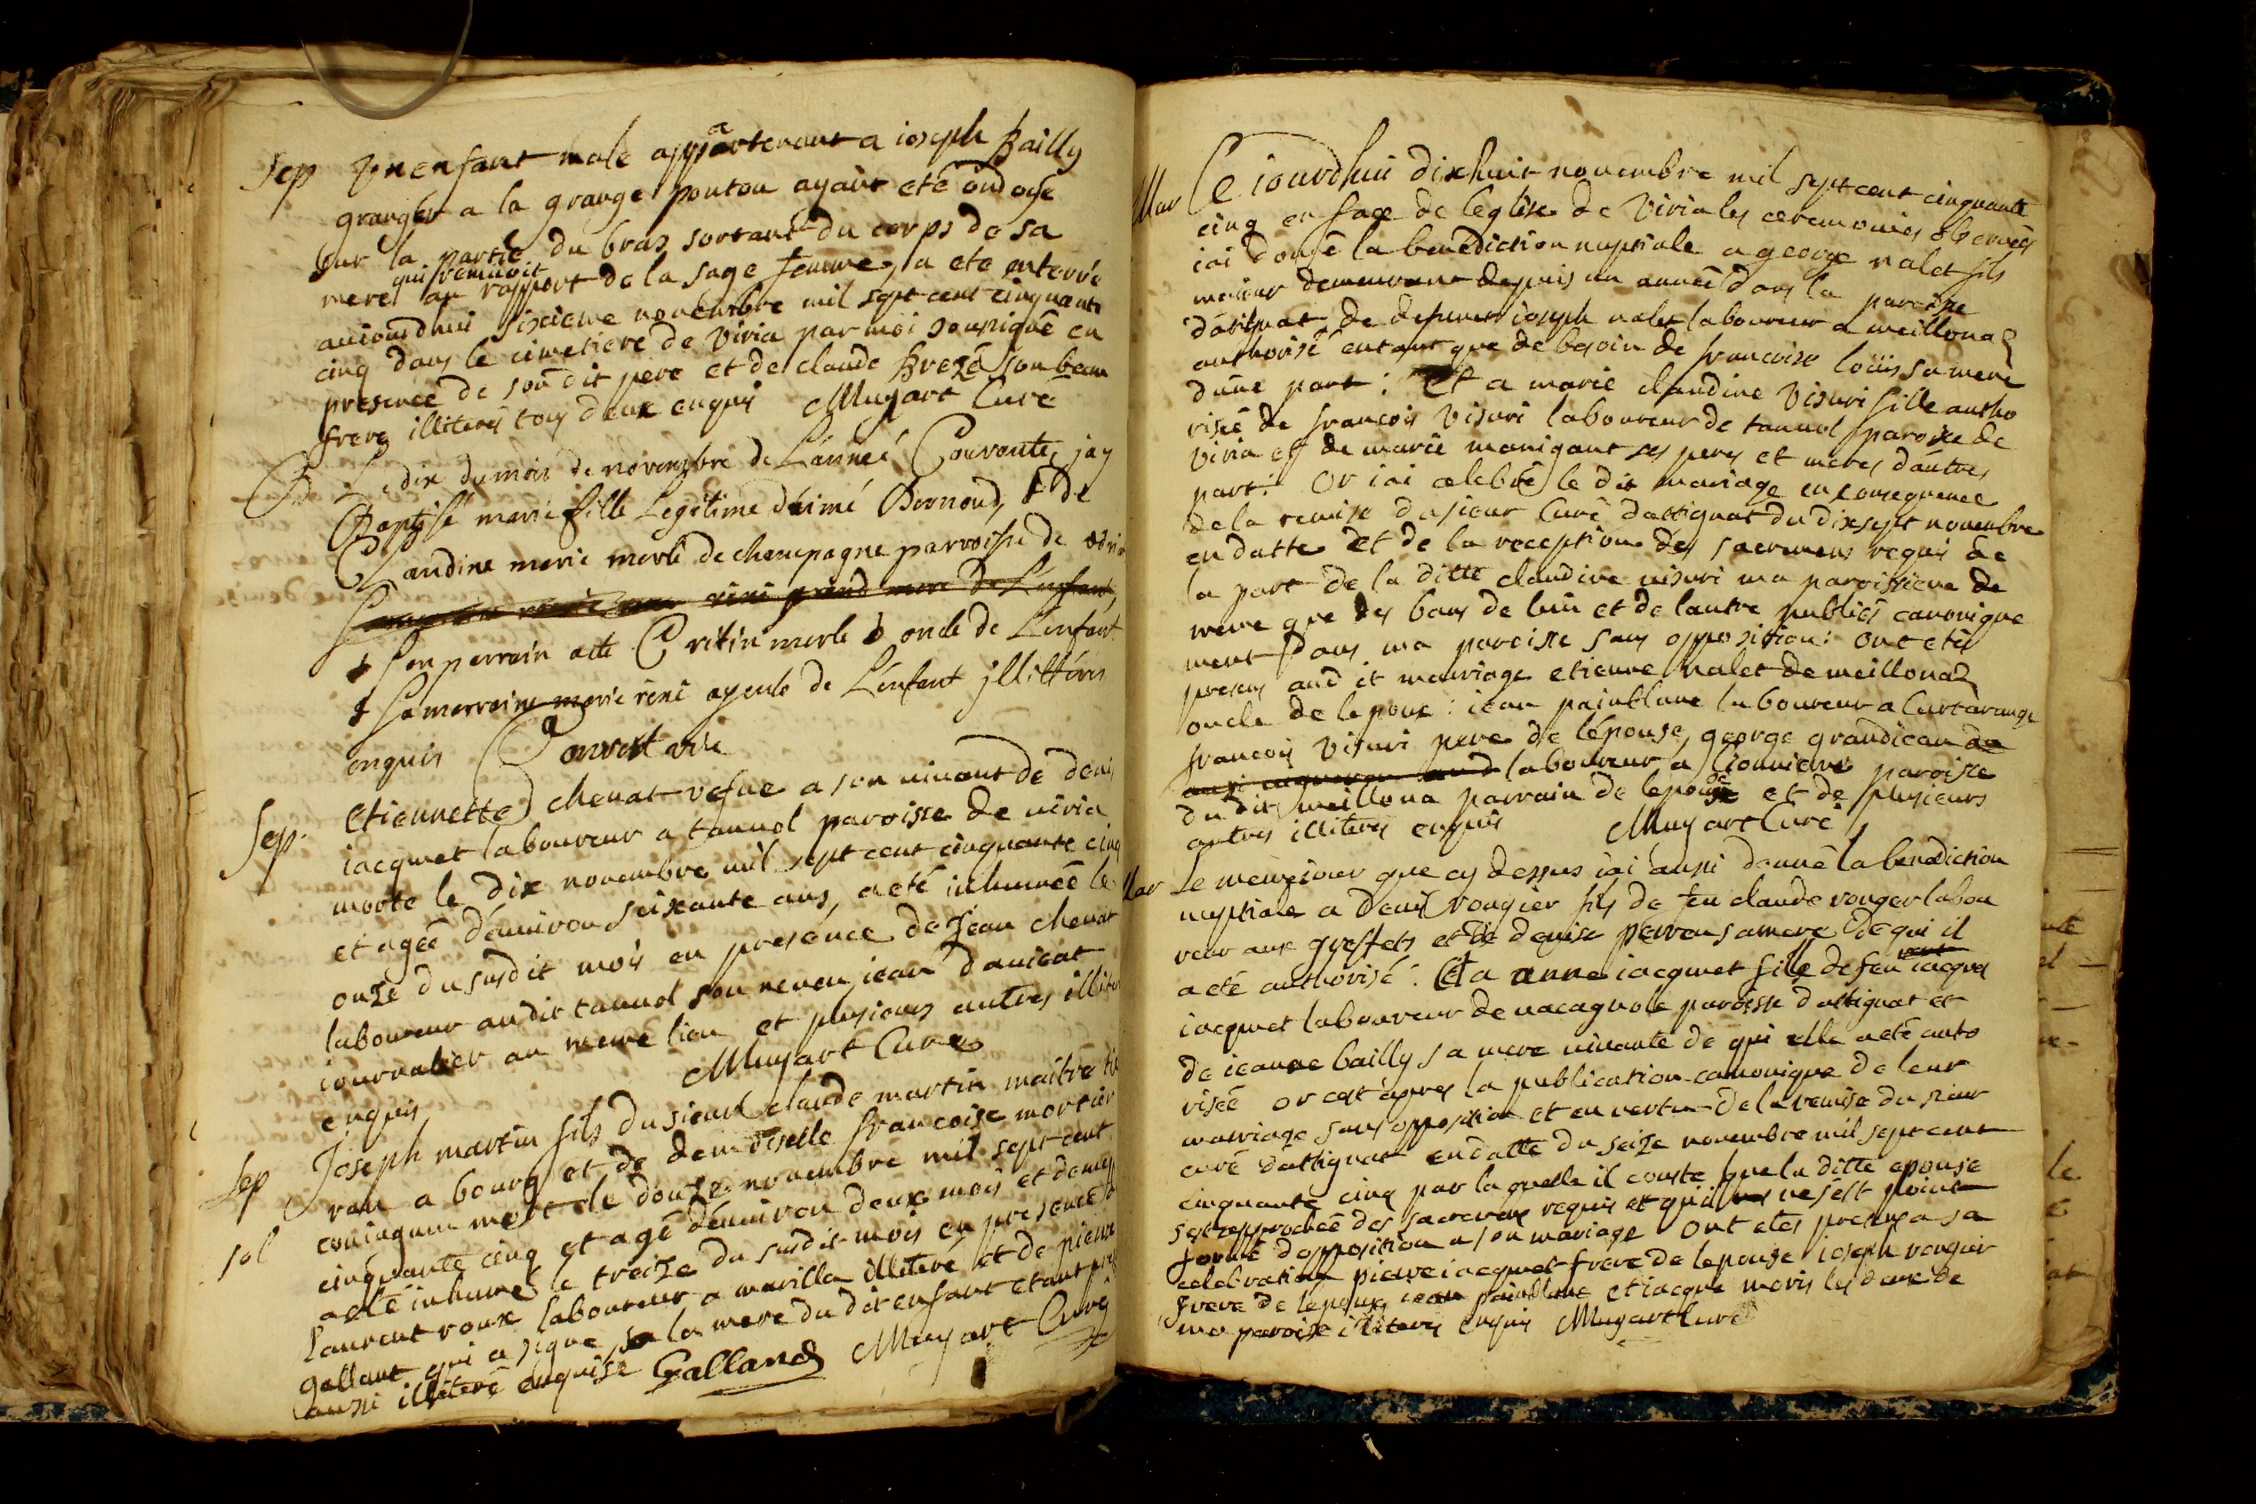 Sep Un enfant male appartenant a ioseph Bailly
granger a la grange pontou ayant eté ondoyé
sur la partie du bras sortant du corps de sa
mere qui remuoit au rapport de la sage femme, a ete enterré
auiourdhui sixieme novembre mil sept cent cinquante
cinq dans le cimetiere de viria par moi soussigné en
presence de son dit pere et de claude Brezé son beau
frere illiterés tous deux enquis Muyart Curé
Le dix du mois de novembre de L'année Courante, jay
Baptisé marie fille Legitime d'aimé Bornoud, & de
Claudine marie merle de champagne parroisse de viria
grand mere de L'enfant,
& son parrain a ete merle oncle de L'enfant
& sa marraine marie reni ayeule de L'enfant jllittérés
enquis Convert vic
Sep. Etiennette chenat vefue a son uiuant de denis
iacquet laboureur a tannol paroisse de uiria
morte le dix novembre mil sept cent cinquante cinq
et agée d'enuiron seixante ans, a eté inhumée le
onze du susdit mois en presence de Jean chenat
laboureur au dit tannol son neveu, iean dauicat
iournalier au meme lieu et plusieurs autres illiterés
enquis Muyart Curé
Sep Joseph martin fils du sieur claude martin maitre
a bourg et de demoiselle francoise mortier
sol mort le douze novembre mil sept cent
cinquante cinq et agé d'enuiron deux mois et demi,
a eté inhumé le treize du susdit mois en presence de
Laurent roux laboureur a marilla illiteré et de pierre
gallant qui a signé, la mere du dit enfant etant
aussi illiteré enquise Galland Muyart Curé
Mar Ce iourdhui dix huit novembre mil sept cent cinquante
cinq en face de l'eglise de Viria les ceremonies observées
iai donné la benediction nuptiale a george nalet fils
mineur demeurant depuis un année dans la paroisse
d'attignat de defunt ioseph nalet laboureur a meillonaz
authorisé entant que de besoin de francoise loüis sa mere
d'une part: Et a marie claudine Visuri fille autho
risée de francois Visuri laboureur de tannol paroisse de
Viria et de marie manigant ses peres et meres d'autres
part: Or iai celebré le dit mariage en consequence
de la remise du sieur Curé d'attignat du dixsept novembre
en datte et de la reception des sacremens requis de
la part de la ditte claudine uisuri ma paroissiene de
meme que des bans de l'un et de l'autre publiés canonique
ment dans ma paroisse sans opposition: ont eté
presens audit mariage etienne nalet de meillonaz
oncle de lepoux: iean painblanc laboureur a Curtarange
francois Visuri pere de lépouse, george grandiean
laboureur a paroisse
du dit meillona parrain de lepouse et de plusieurs
autres illiteres enquis Muyart Curé
Mar Le meme iour que cy dessus iai aussi donné la benediction
nuptiale a denis rougier fils de feu claude rouger labou
reur aux greffets et de denise perren sa mere de qui il
a eté authorisé: Et a anne iacquet fille de feu iacques
iacquet laboureur de uacagnole paroisse d'attignat et
de ieanne bailly sa mere uiuante de qui elle a eté auto
risée or cest apres la publication canonique de leur
mariage sans opposition et en vertu de la remise du sieur
curé d'attignat en datte du seize novembre mil sept cent
cinquante cinq par laquelle il conste que la ditte epouse
s'est approchée des sacremens requis et qu'il ne s'est point
formé d'opposition a son mariage ont etés presens a sa
celebration pierre iacquet frere de lepouse ioseph rougier
frere de lepoux, iean painblanc et iacque moris les deux de
ma paroisse illiteres enquis Muyart Curé